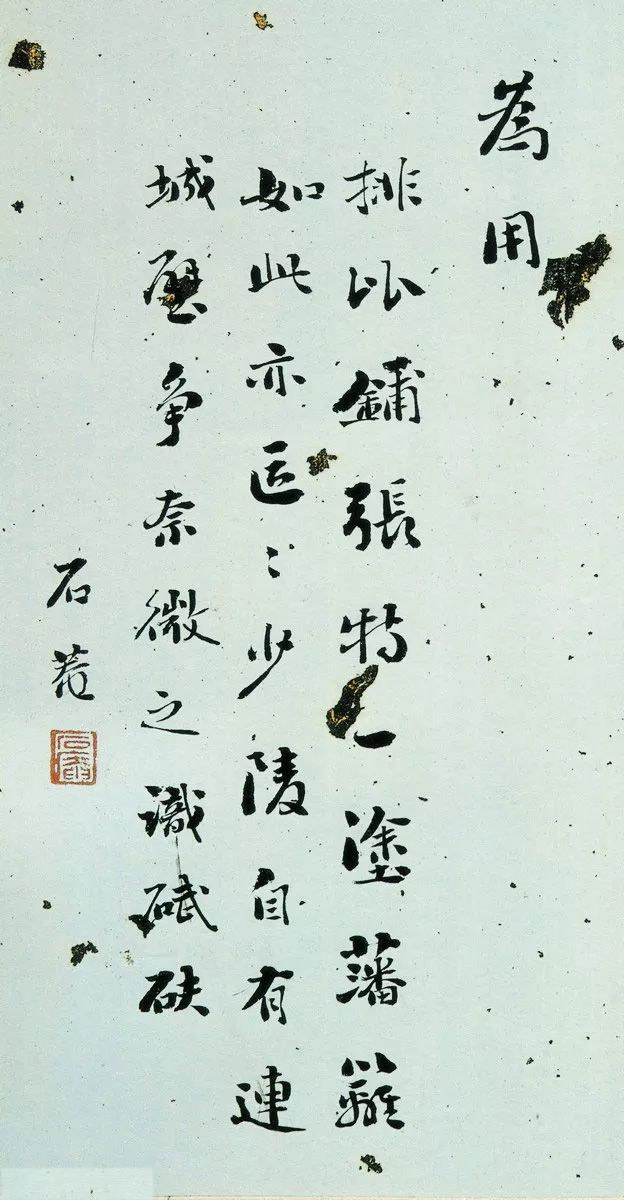 為用
排比鋪張特一塗藩籬
如此亦區〻少陵自有連
城璧争奈微之識碔砆
石菴
石盦